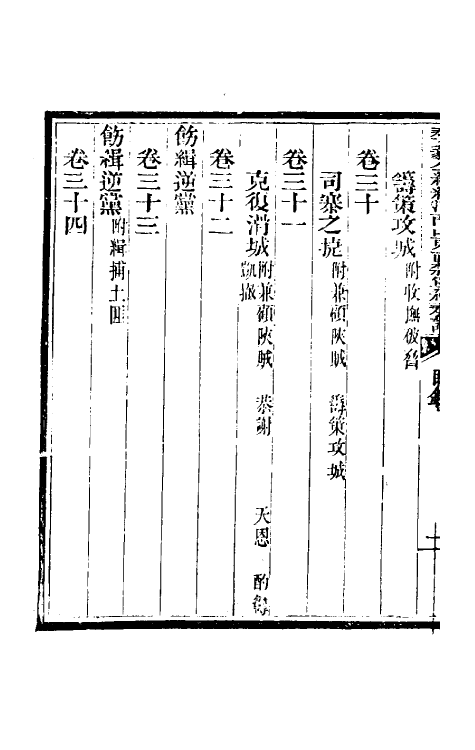 籌策攻城 附收撫被脅
卷三十
司寨之捷 附兼顧陝賊 籌策攻城
卷三十一
克復滑城 附兼顧陝賊 恭謝 天恩 酌籌
凱撤
卷三十二
飭緝逆黨
卷三十三
飭緝逆黨 附緝捕土匪
卷三十四